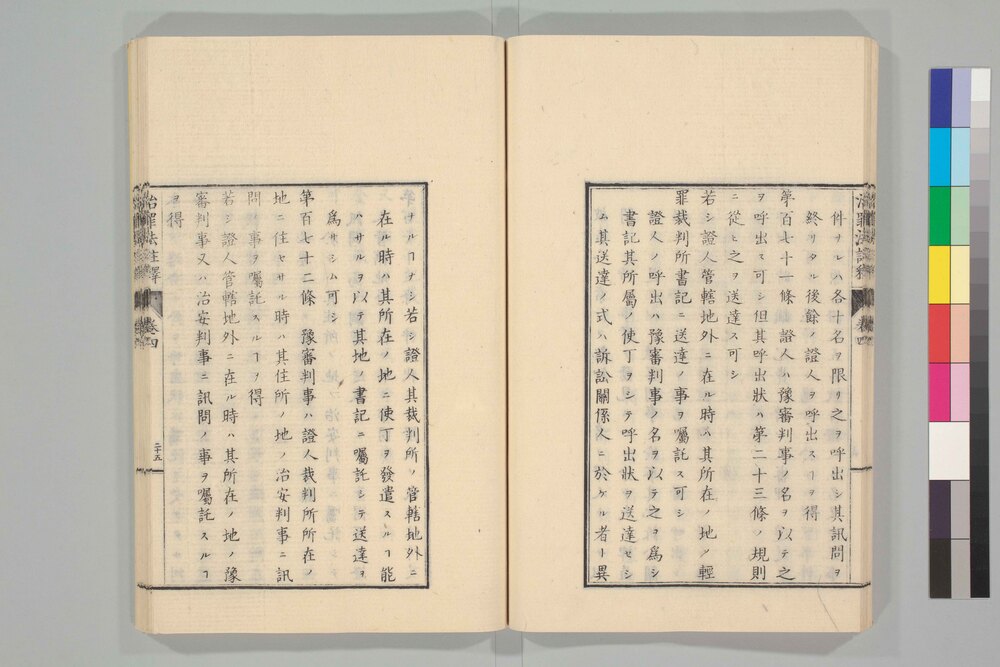 治罪法註釋 卷四
件ナルハ各十名ヲ限リ之ヲ呼出シ其訊問ヲ
終リタル後餘ノ證人ヲ呼出スヿヲ得
第百七十一條 證人ハ豫審判事ノ名ヲ以テ之
ヲ呼出ス可シ但其呼出狀ハ第二十三條ノ規則
ニ從ヒ之ヲ送達ス可シ
若シ證人管轄地外ニ在ル時ハ其所在ノ地ノ輕
罪裁判所書記ニ送達ノ事ヲ囑託ス可シ
證人ノ呼出ハ豫審判事ノ名ヲ以テ之ヲ爲シ
書記其所屬ノ使丁ヲシテ呼出狀ヲ送達セシ
ム其送達ノ式ハ訴訟關係人ニ於ケル者ト異
ナルヿナシ若シ證人其裁判所ノ管轄地外ニ
在ル時ハ其所在ノ地ニ使丁ヲ發遣スルヿ能
ハサルヲ以テ其地ノ書記ニ囑託シテ送達ヲ
爲サシム可シ
第百七十二條 豫審判事ハ證人裁判所所在ノ
地ニ住セサル時ハ其住所ノ地ノ治安判事ニ訊
問ノ事ヲ囑託スルヿヲ得
若シ證人管轄地外ニ在ル時ハ其所在ノ地ノ豫
審判事又ハ治安判事ニ訊問ノ事ヲ囑託スルヿ
ヲ得
治罪法註釋 卷四 二十五